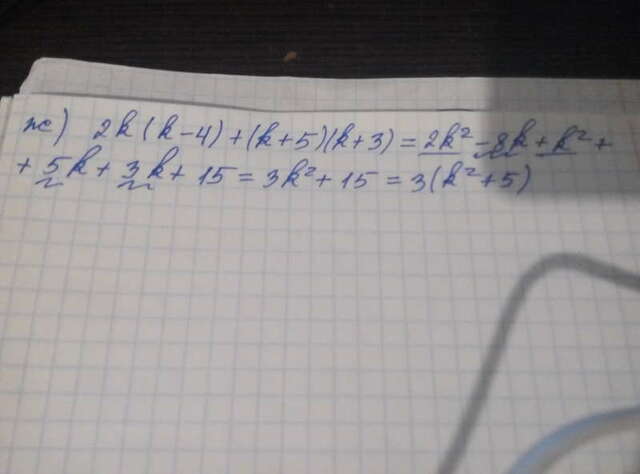 ж) 2k(k-4)+(k+5)(k+3)=2k²-8k+k²+
+5k+3k+15=3k²+15=3(k²+5)